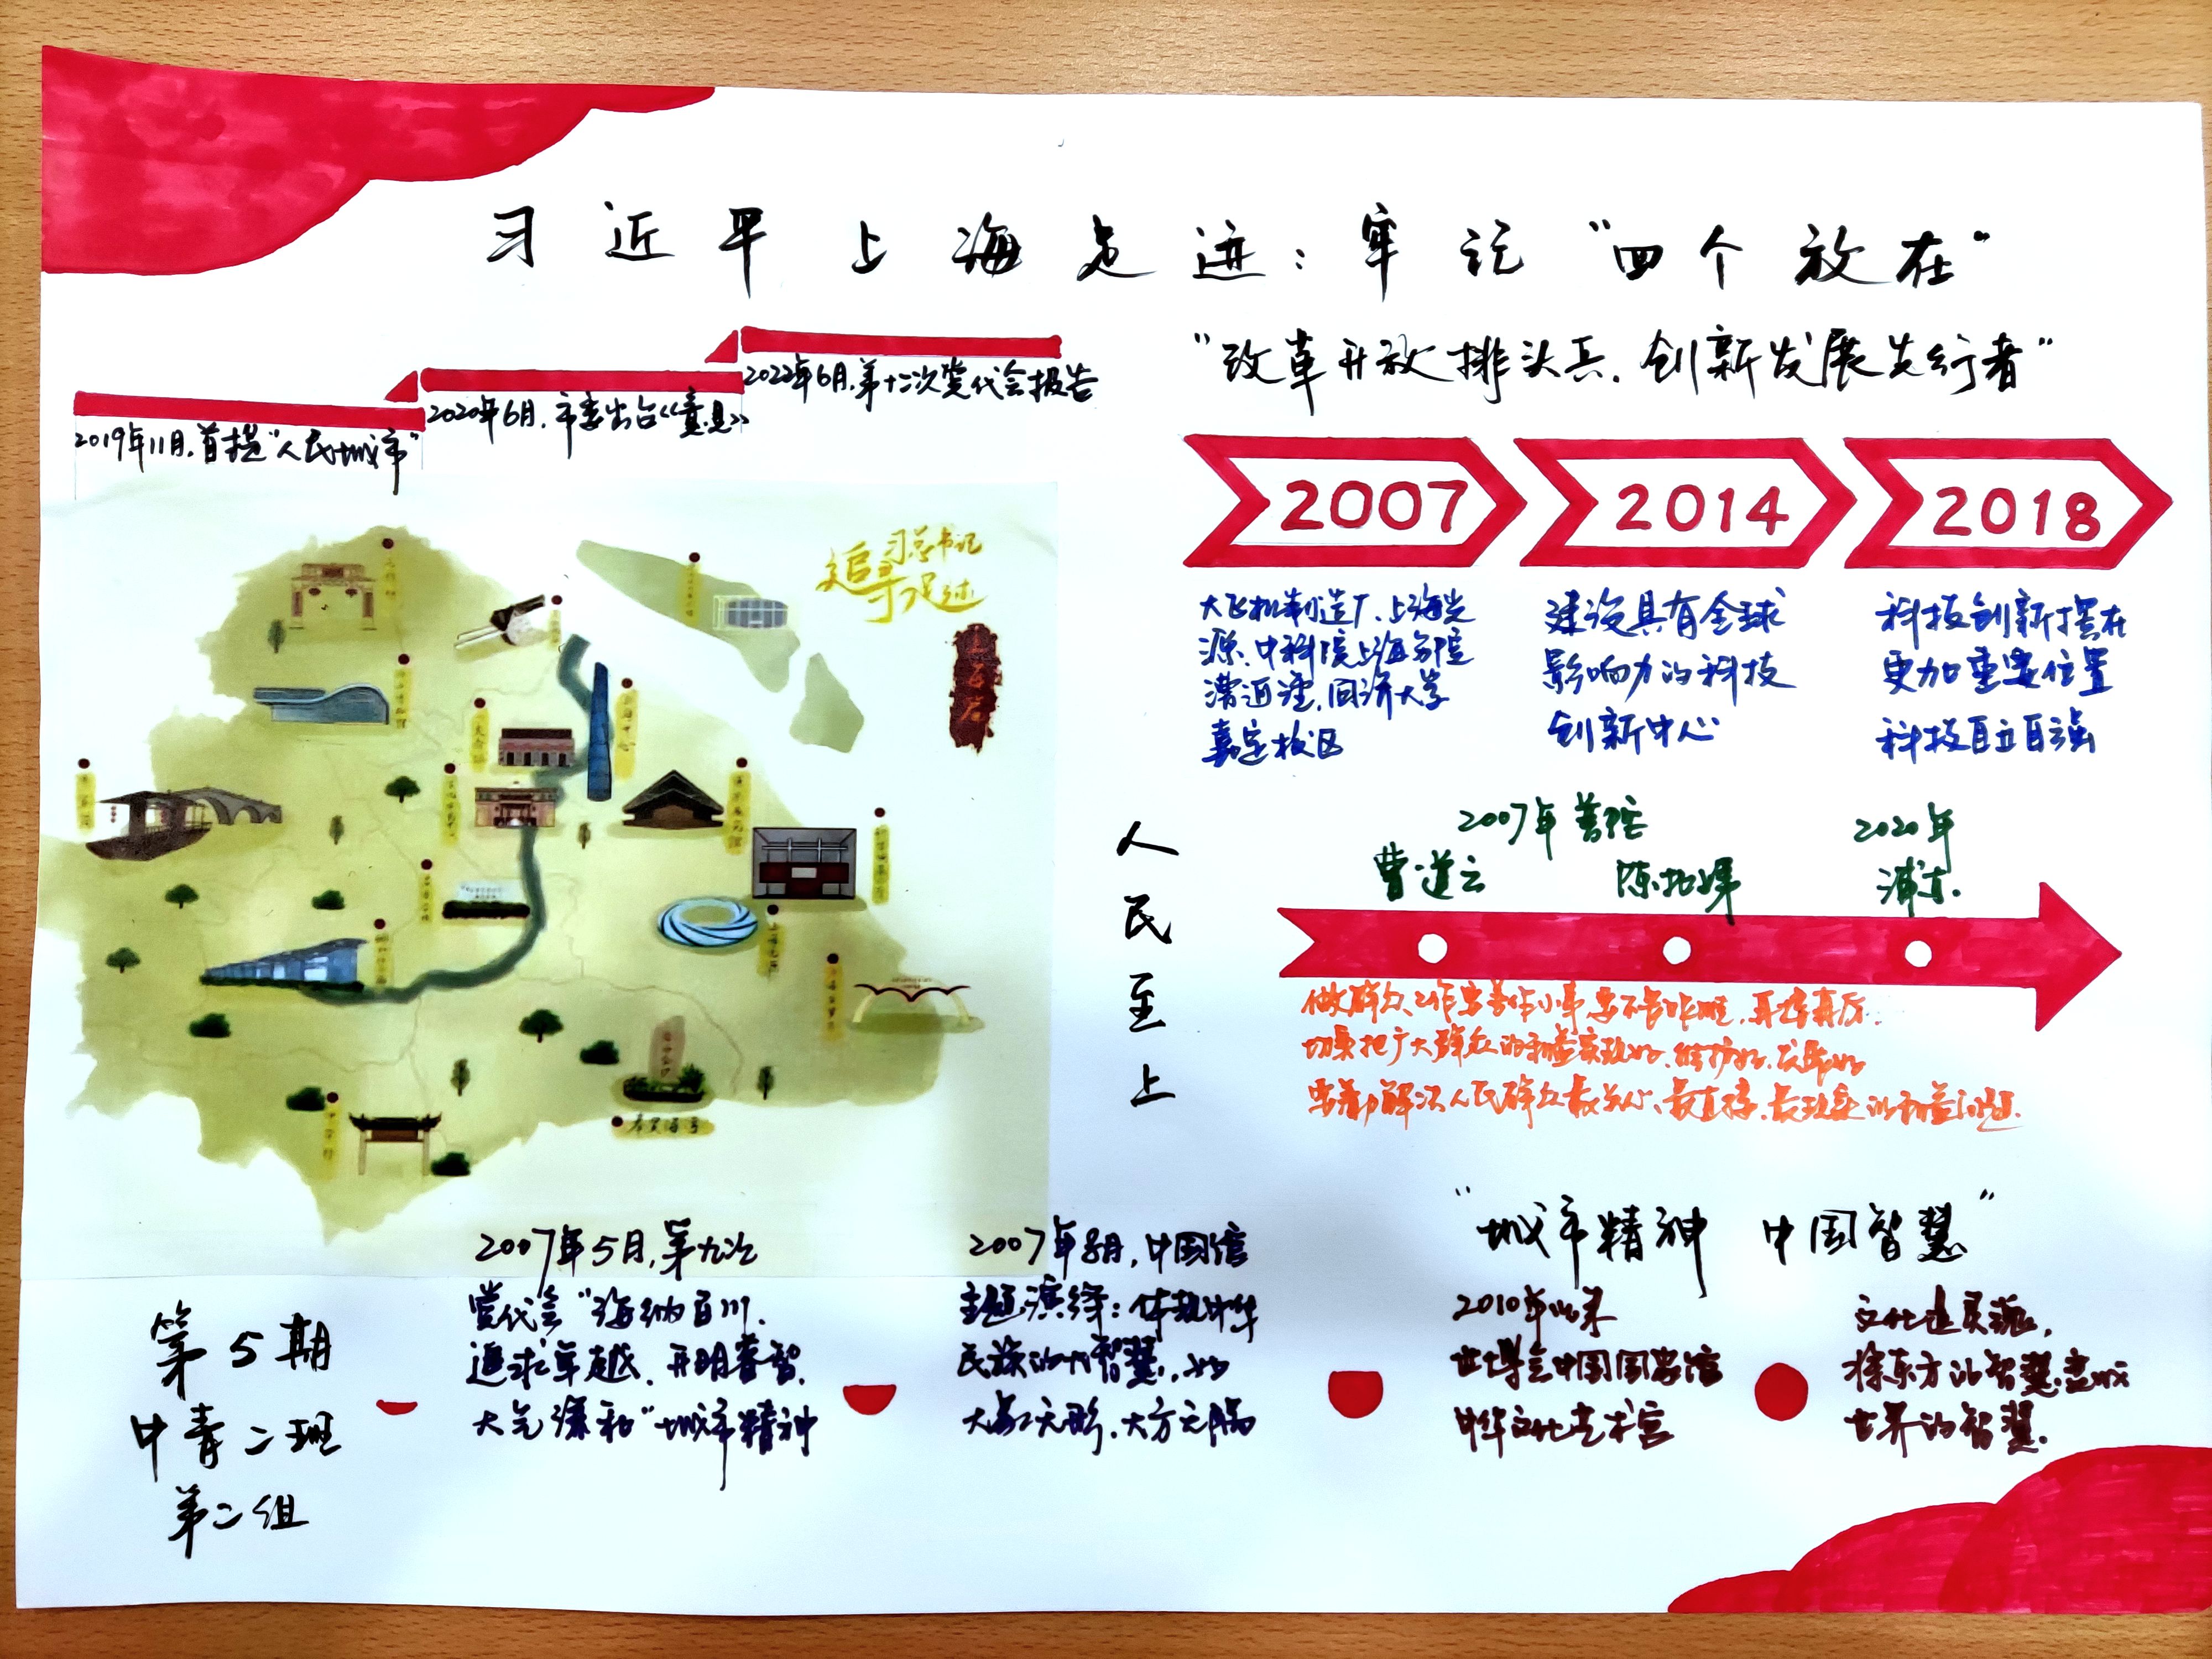 习近平上海足迹：牢记“四个放在”
2019年11月，首提“人民城市”
2020年6月，市委出台《意见》
2022年6月，第十二次党代会报告
追寻习总书记足迹
“改革开放排头兵、创新发展先行者”
2007
2014
2018
大飞机制造厂、上海光
源、中科院上海分院
漕河泾、同济大学
嘉定校区
建设具有全球
影响力的科技
创新中心
科技创新摆在
更加重要位置
科技自立自强
人民至上
2007年 普陀
曹道云
2020年
浦东
做群众工作
切实把广大群众的利益实现好、维护好、发展好
要着力解决人民群众最关心、最直接、最现实的利益问题
“城市精神 中国智慧”
2007年5月，第九次
党代会“海纳百川、
追求卓越、开明睿智、
大气谦和”城市精神
2007年8月，中国馆
主题演绎：体现中华
民族的大智慧，如
大象无形，大方无隅
2010年以来
世博会中国国家馆
中华文化艺术宫
文化是灵魂，
将东方的智慧变成
世界的智慧.
第5期
中青二班
第二组